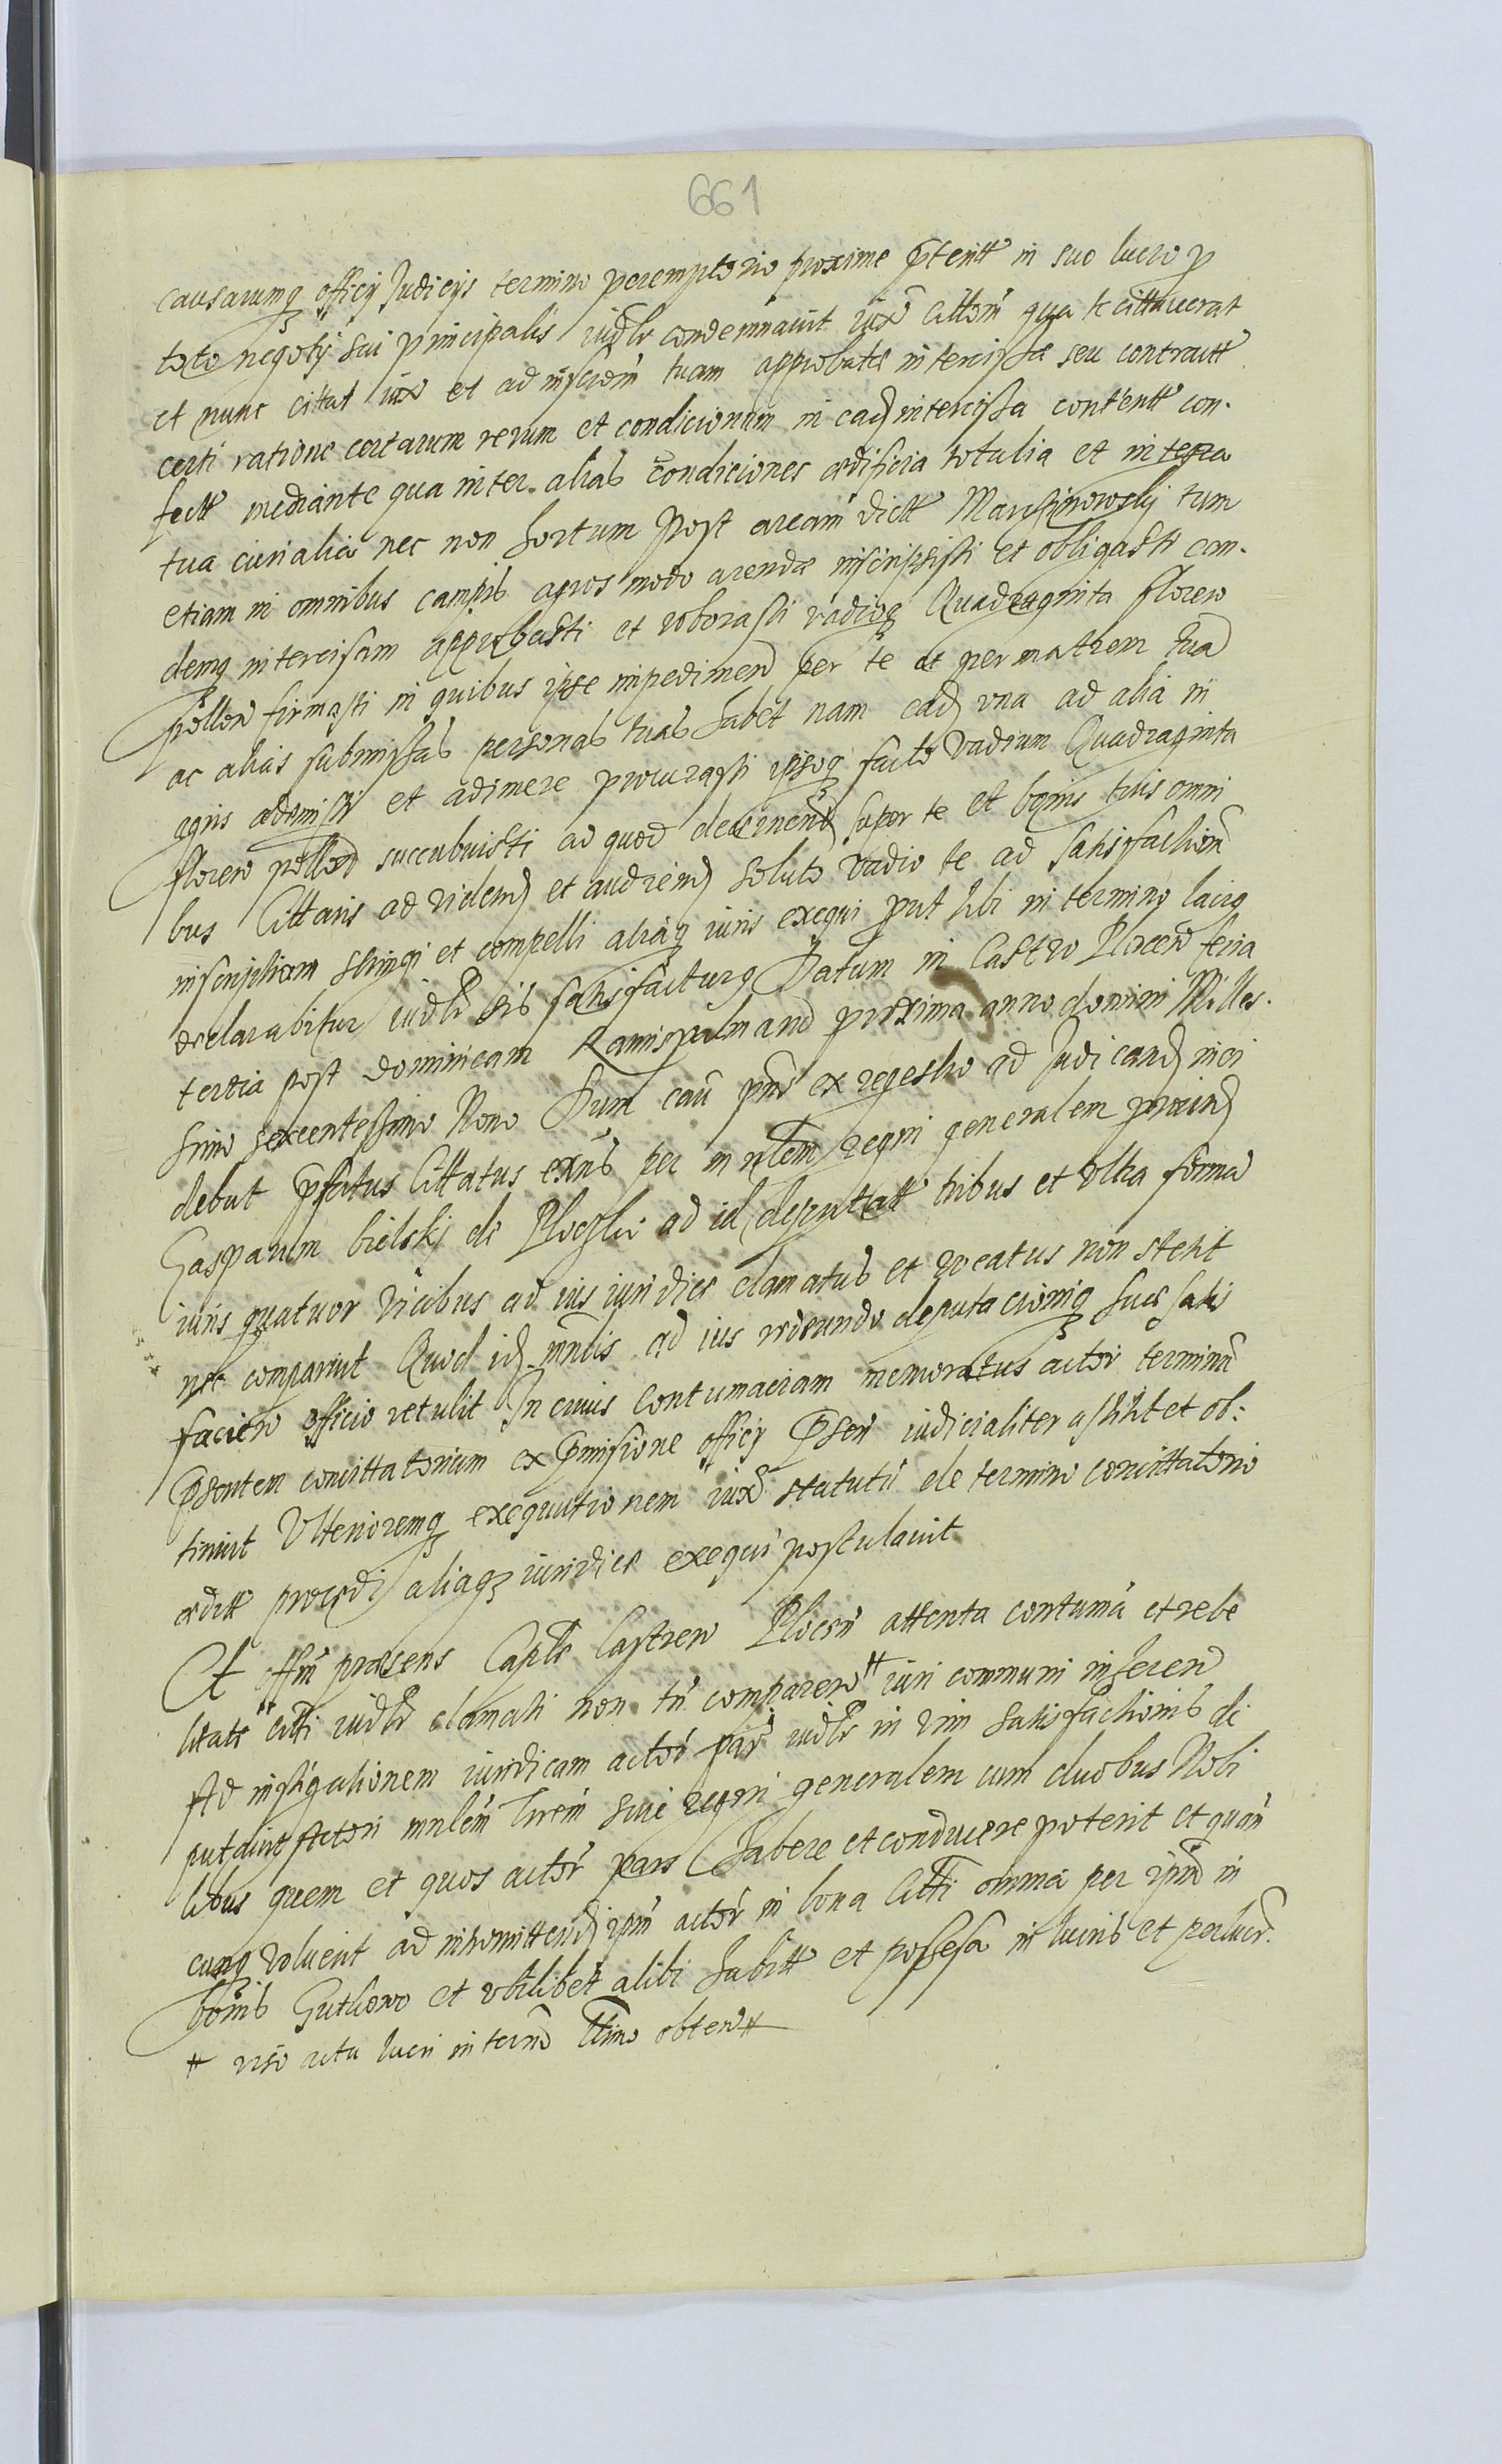 661
causarumq officij Judicijs termino peremptorio proxime pteritt in suo lucro p
toto negotij sui principalis iudlr condemnauit iux citтom qua te cittauerat
et nunc cittat iux et ad inscrom tuam approbate intercissæ seu contractt
certi ratione certarum rerum et condicionum in ead intercissa contentt con-
fectt mediante qua inter alias condiciones ædificia totalia et integra
tua curialia nec non hortum Post aream dictt tum
etiam in omnibus campis agros modo arendæ inscripsisti et obligasti ean-
demq intercisam approbasti et roborasti vadioq Quadraginta floren
pollon firmasti in quibus ipse impedimen per te et per matrem tuã
ac alias submissas personas tuas habet nam ead una ad alia in
agris ademisti et adimere procurasti ipsoq facto vadium Quadraginta
floren pollon succubuisti ad quod decernend super te et bonis tuis omni
bus Cittaris ad videnđ et audienđ soluto vadio te ad satisfactionẽ
inscriptiom stringi et compelli aliaq iuris exequi put tibi in termino laciq
declarabitur iudlr sis satisfacturq Datum in Castro Plocen feria
tertia post dominicam Ramispalmarũ proxima anno domini Milles-
simo sexcentessimo Nono Dum cau pns ex regestro ad Judicand inci
debat pfatus Cittatus exns per mnlem regni generalem prouid
Gasparum bielski de Ploczko ad id deputatt tribus et vltra forma
iuris quatuor vicibus ad ius iuridice clamatus et vocatus non stetit
nec comparuit Quod id mnlis ad ius reddundo deputacioniq suæ satis
facien officio retulit In cuius Contumaciam memoratus actor terminũ
psentem concittatorium ex pmisione officij psen iudicialiter astitit et ob-
tinuit Vlterioremq exequutionem iux statutũ de termino concittatorio
æditt procedi aliaq iuridice exequi postulauit
Et offm præsens Caple Castren Plocen attenta contumã et rebe
litate citti iudlr clamati non tñ comparen # iuri communi inheren
Ad instigationem iuridicam actor pars iudlr in vim satisfactionis de
putauit Actori mnlem trem siue regni generalem cum duobus Nobi
libus quem et quos actor pars habere et conducere poterit et quan
cunq voluerit ad intromittend ipm actor in bona Citti omnia per ipm in
bonis Gutkowo et vbilibet alibi habitt et possessa in lucris et perlucr.
# viso actu lucri in termo ttimo obten #